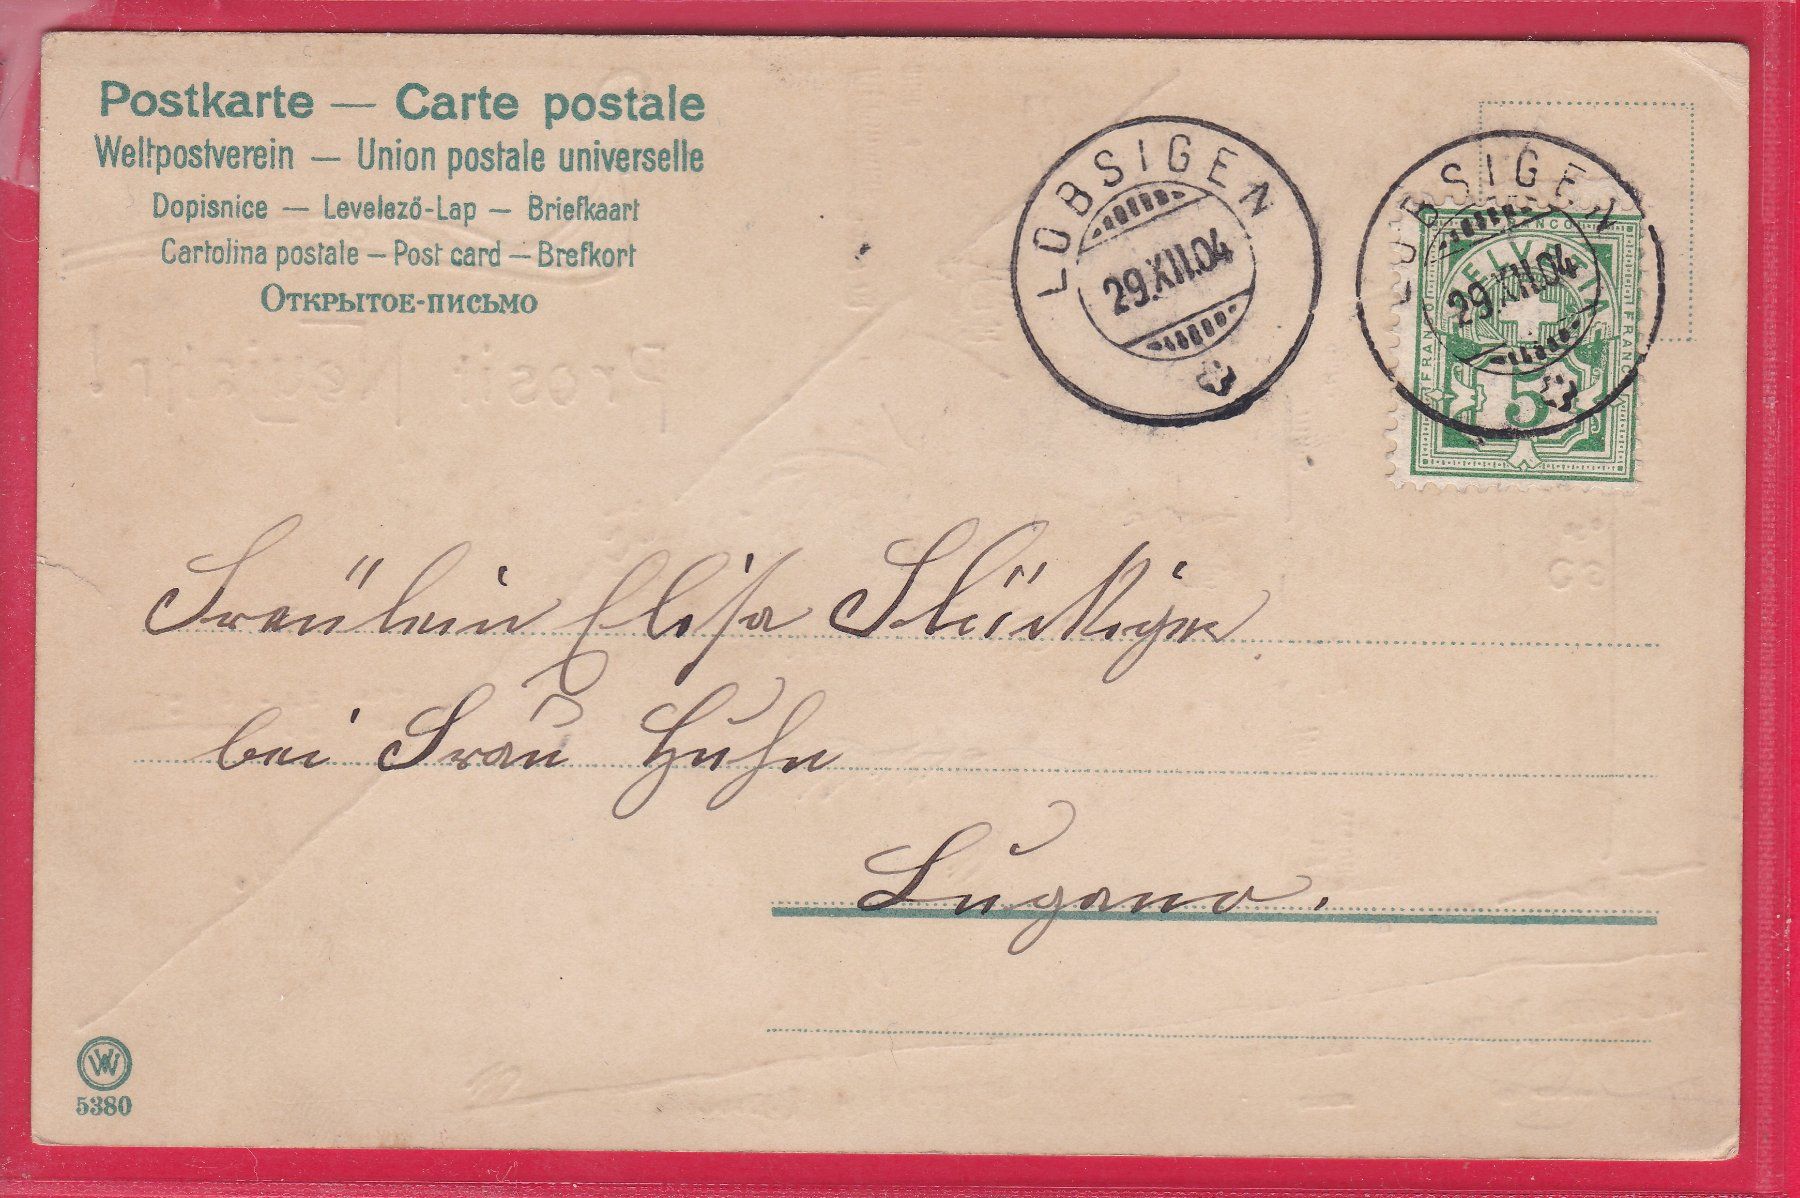 Postkarte — Carte postale
Weltpostverein — Union postale universelle
Dopisnice — Levelező-Lap — Briefkaart
Cartolina postale — Post card — Brefkort
Открытое-письмо
LOBSIGEN
29.XII.04
LOBSIGEN
29.XII.04
FRANCO
HELVETIA
FRANCO
FRANCO
5
Prosit Neujahr!
Fräulein Elisa Stückiger
bei Frau Huhn
Lugano.
5380